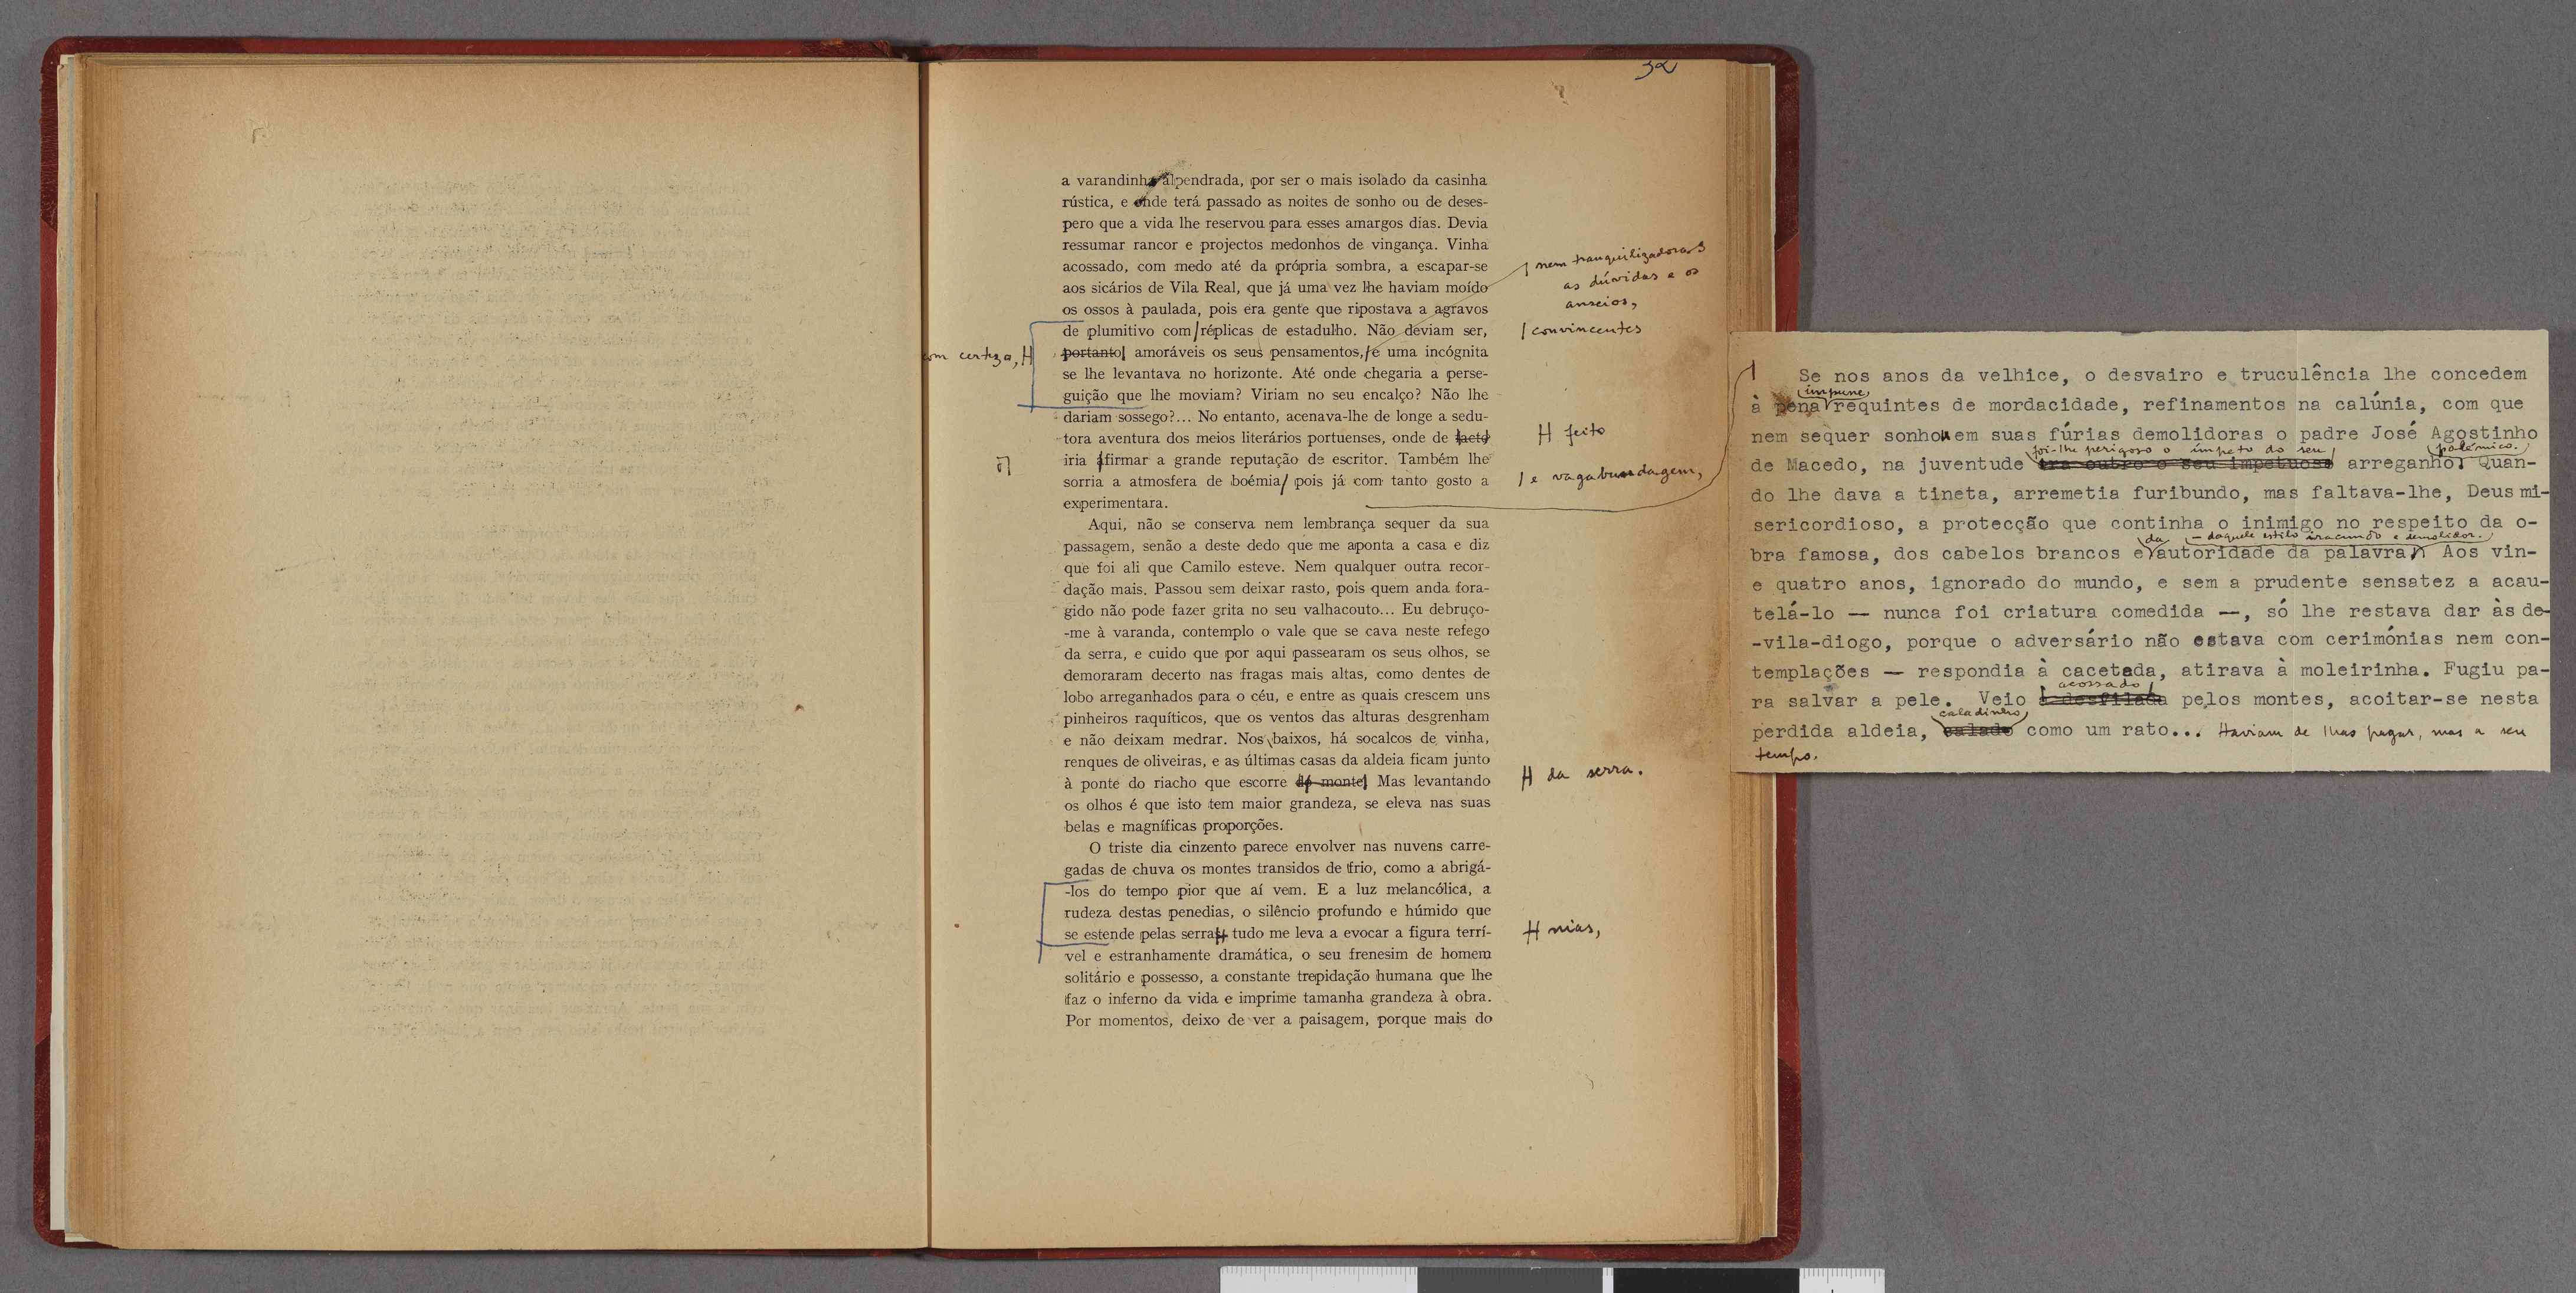 32
a varandinha alpendrada, por ser o mais isolado da casinha
rústica, e onde terá passado as noites de sonho ou de deses-
pero que a vida lhe reservou para esses amargos dias. Devia
ressumar rancor e projectos medonhos de vingança. Vinha
acossado, com medo até da própria sombra, a escapar-se
aos sicários de Vila Real, que já uma vez lhe haviam moído
os ossos à paulada, pois era gente que ripostava a agravos
de plumitivo com réplicas de estadulho. Não deviam ser,
portanto, amoráveis os seus pensamentos, e uma incógnita
se lhe levantava no horizonte. Até onde chegaria a perse-
guição que lhe moviam? Viriam no seu encalço? Não lhe
dariam sossego?... No entanto, acenava-lhe de longe a sedu-
tora aventura dos meios literários portuenses, onde de facto
iria afirmar a grande reputação de escritor. Também lhe
sorria a atmosfera de boémia, pois já com tanto gosto a
experimentara.
Aqui, não se conserva nem lembrança sequer da sua
passagem, senão a deste dedo que me aponta a casa e diz
que foi ali que Camilo esteve. Nem qualquer outra recor-
dação mais. Passou sem deixar rasto, pois quem anda fora-
gido não pode fazer grita no seu valhacouto... Eu debruço-
-me à varanda, contemplo o vale que se cava neste refego
da serra, e cuido que por aqui passearam os seus olhos, se
demoraram decerto nas fragas mais altas, como dentes de
lobo arreganhados para o céu, e entre as quais crescem uns
pinheiros raquíticos, que os ventos das alturas desgrenham
e não deixam medrar. Nos baixos, há socalcos de vinha,
renques de oliveiras, e as últimas casas da aldeia ficam junto
à ponte do riacho que escorre do monte. Mas levantando
os olhos é que isto tem maior grandeza, se eleva nas suas
belas e magníficas proporções.
O triste dia cinzento parece envolver nas nuvens carre-
gadas de chuva os montes transidos de frio, como a abrigá-
-los do tempo pior que aí vem. E a luz melancólica, a
rudeza destas penedias, o silêncio profundo e húmido que
se estende pelas serras, tudo me leva a evocar a figura terrí-
vel e estranhamente dramática, o seu frenesim de homem
solitário e possesso, a constante trepidação humana que lhe
faz o inferno da vida e imprime tamanha grandeza à obra.
Por momentos, deixo de ver a paisagem, porque mais do
om certeza,
nem tranquilizadoras
as dúvidas e os
anseios,
convincentes
feito
e vagabundagem,
da serra.
nias,
Se nos anos da velhice, o desvairo e truculência lhe concedem
impune
à pena requintes de mordacidade, refinamentos na calúnia, com que
nem sequer sonhou em suas fúrias demolidoras o padre José Agostinho
foi-lhe perigoso o ímpeto do seu polémico.
de Macedo, na juventude era outro o seu impetuoso arreganho. Quan-
do lhe dava a tineta, arremetia furibundo, mas faltava-lhe, Deus mi-
sericordioso, a protecção que continha o inimigo no respeito da o-
da — daquele estilo iracundo e demolidor.
bra famosa, dos cabelos brancos e autoridade da palavra. Aos vin-
e quatro anos, ignorado do mundo, e sem a prudente sensatez a acau-
telá-lo — nunca foi criatura comedida —, só lhe restava dar às de-
-vila-diogo, porque o adversário não estava com cerimónias nem con-
templações — respondia à cacetada, atirava à moleirinha. Fugiu pa-
acossado
ra salvar a pele. Veio à desfilada pelos montes, acoitar-se nesta
caladinho
perdida aldeia, calado como um rato... Haviam de lhas pagar, mas a seu
tempo.